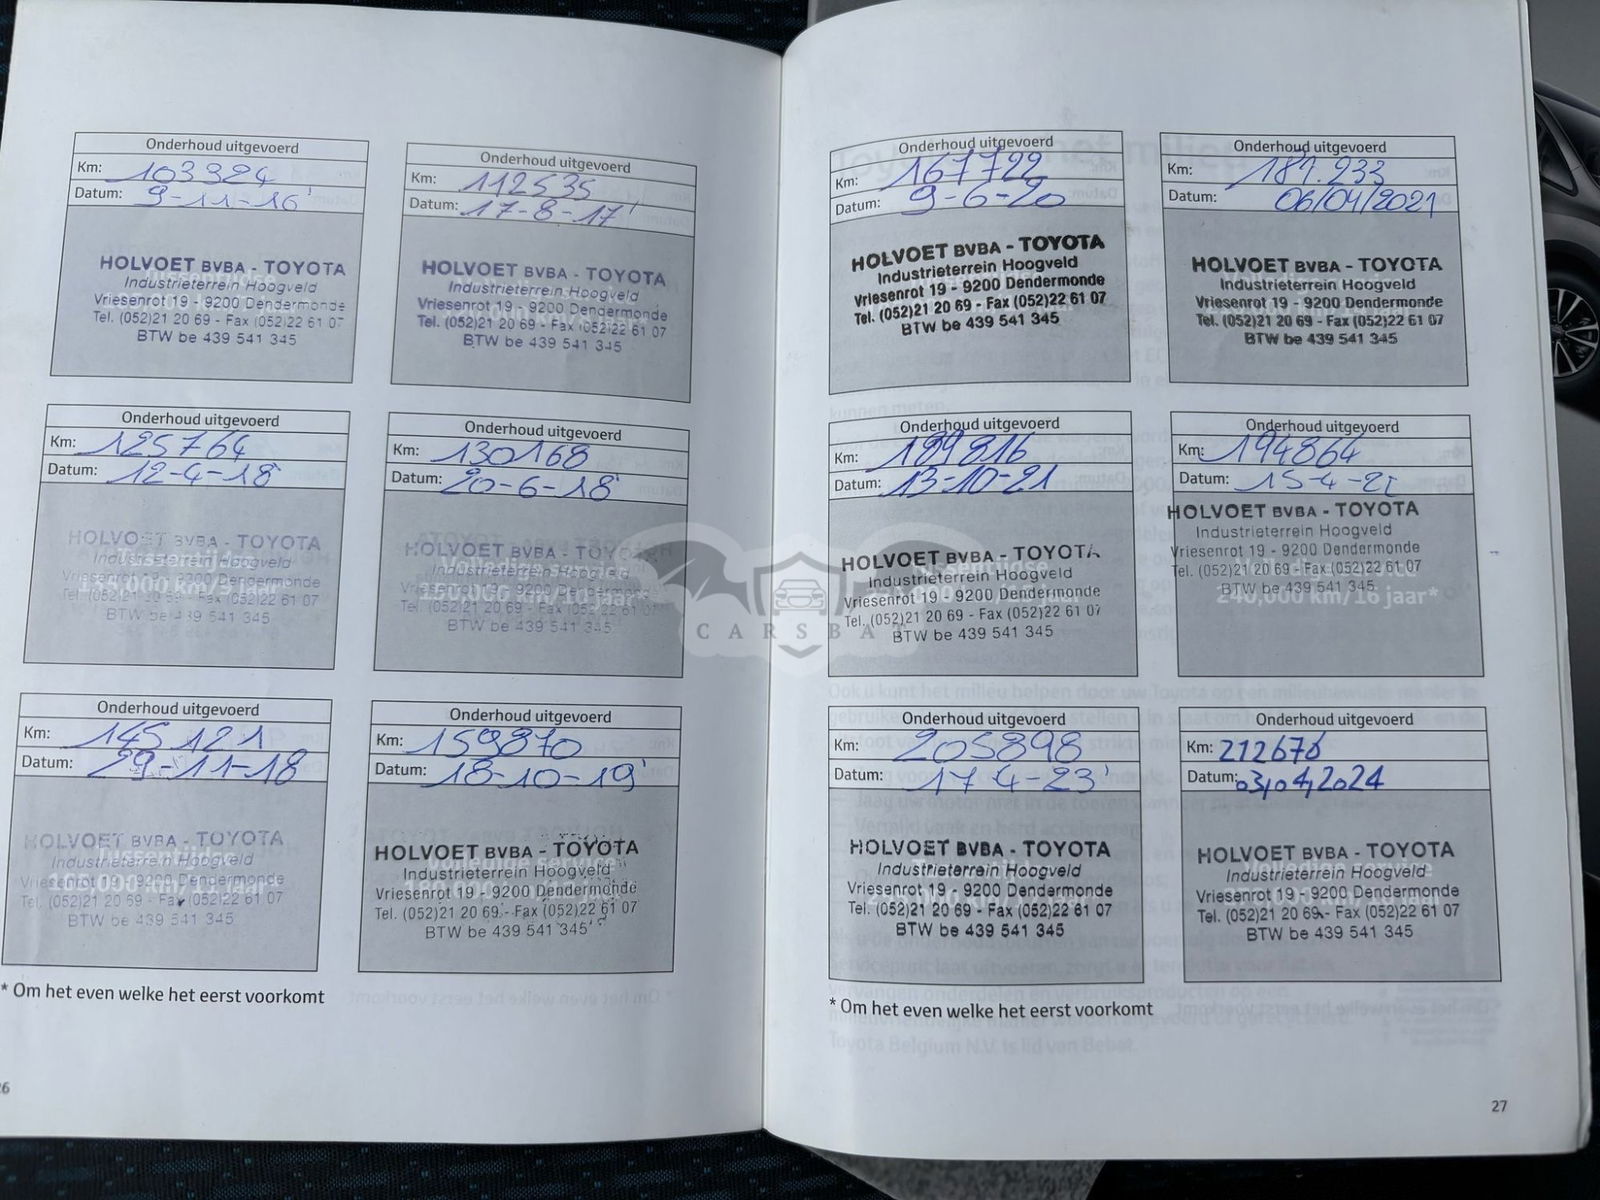 Onderhoud uitgevoerd
Km: 103324
Datum: 9-11-16
HOLVOET BVBA - TOYOTA
Industrieterrein Hoogveld
Vriesenrot 19 - 9200 Dendermonde
Tel. (052)21 20 69 - Fax (052)22 61 07
BTW be 439 541 345
Onderhoud uitgevoerd
Km: 112535
Datum: 17-8-17
HOLVOET BVBA - TOYOTA
Industrieterrein Hoogveld
Vriesenrot 19 - 9200 Dendermonde
Tel. (052)21 20 69 - Fax (052)22 61 07
BTW be 439 541 345
Onderhoud uitgevoerd
Km: 125764
Datum: 12-4-18
HOLVOET BVBA - TOYOTA
Industrieterrein Hoogveld
Vriesenrot 19 - 9200 Dendermonde
Tel. (052)21 20 69 - Fax (052)22 61 07
BTW be 439 541 345
Onderhoud uitgevoerd
Km: 130168
Datum: 20-6-18
HOLVOET BVBA - TOYOTA
Industrieterrein Hoogveld
Vriesenrot 19 - 9200 Dendermonde
Tel. (052)21 20 69 - Fax (052)22 61 07
BTW be 439 541 345
Onderhoud uitgevoerd
Km: 145121
Datum: 29-11-18
HOLVOET BVBA - TOYOTA
Industrieterrein Hoogveld
Vriesenrot 19 - 9200 Dendermonde
Tel. (052)21 20 69 - Fax (052)22 61 07
BTW be 439 541 345
Onderhoud uitgevoerd
Km: 159870
Datum: 18-10-19
HOLVOET BVBA - TOYOTA
Industrieterrein Hoogveld
Vriesenrot 19 - 9200 Dendermonde
Tel. (052)21 20 69 - Fax (052)22 61 07
BTW be 439 541 345
* Om het even welke het eerst voorkomt
26
Onderhoud uitgevoerd
Km: 167722
Datum: 9-6-20
HOLVOET BVBA - TOYOTA
Industrieterrein Hoogveld
Vriesenrot 19 - 9200 Dendermonde
Tel. (052)21 20 69 - Fax (052)22 61 07
BTW be 439 541 345
Onderhoud uitgevoerd
Km: 181.233
Datum: 06/04/2021
HOLVOET BVBA - TOYOTA
Industrieterrein Hoogveld
Vriesenrot 19 - 9200 Dendermonde
Tel. (052)21 20 69 - Fax (052)22 61 07
BTW be 439 541 345
Onderhoud uitgevoerd
Km: 189816
Datum: 13-10-21
HOLVOET BVBA - TOYOTA
Industrieterrein Hoogveld
Vriesenrot 19 - 9200 Dendermonde
Tel. (052)21 20 69 - Fax (052)22 61 07
BTW be 439 541 345
Onderhoud uitgevoerd
Km: 194864
Datum:
HOLVOET BVBA - TOYOTA
Industrieterrein Hoogveld
Vriesenrot 19 - 9200 Dendermonde
Tel. (052)21 20 69 - Fax (052)22 61 07
BTW be 439 541 345
240,000 km/16 jaar*
Onderhoud uitgevoerd
Km: 205898
Datum: 17-4-23
HOLVOET BVBA - TOYOTA
Industrieterrein Hoogveld
Vriesenrot 19 - 9200 Dendermonde
Tel. (052)21 20 69 - Fax (052)22 61 07
BTW be 439 541 345
Onderhoud uitgevoerd
Km: 212676
Datum: 03/04/2024
HOLVOET BVBA - TOYOTA
Industrieterrein Hoogveld
Vriesenrot 19 - 9200 Dendermonde
Tel. (052)21 20 69 - Fax (052)22 61 07
BTW be 439 541 345
* Om het even welke het eerst voorkomt
27
CARSBAT